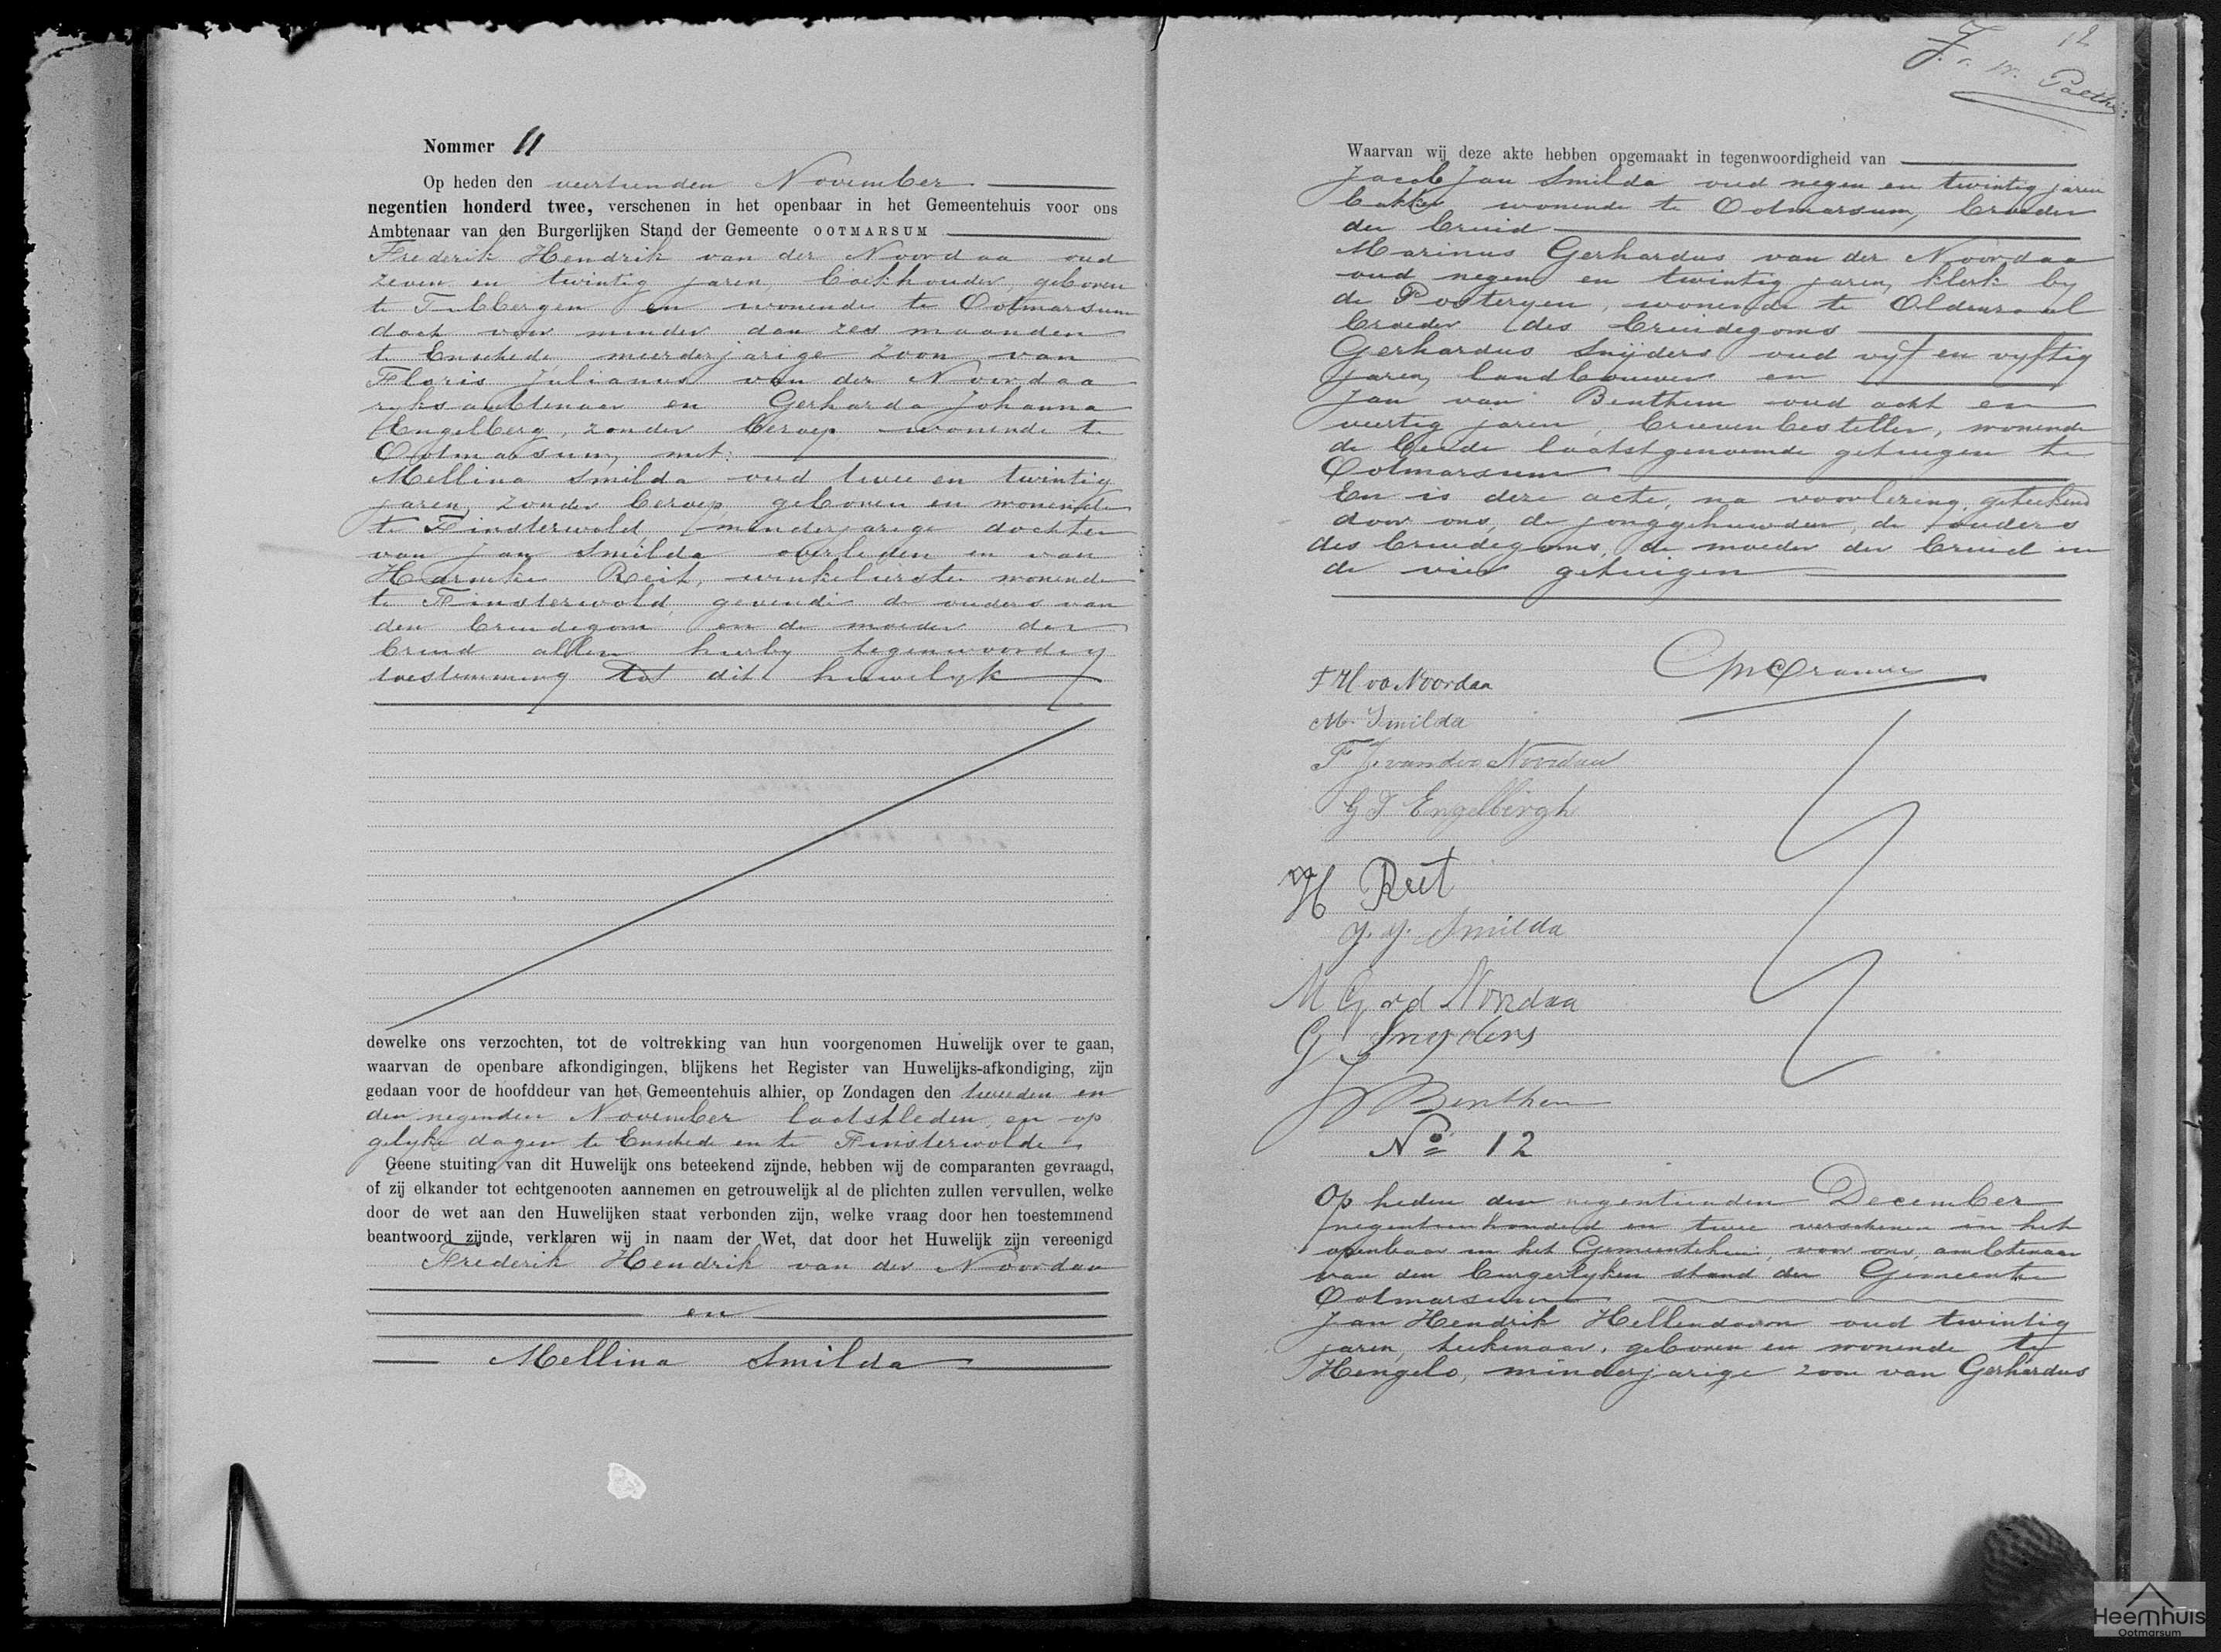 Nommer 11
Op heden den veertienden November
negentien honderd twee, verschenen in het openbaar in het Gemeentehuis voor ons
Ambtenaar van den Burgerlijken Stand der Gemeente OOTMARSUM
Frederik Hendrik van der Noordaa oud
zeven en twintig jaren, boekhouder, geboren
te Tubbergen en wonende te Ootmarsum
doch voor minder dan zes maanden
te Enschede, meerderjarige zoon van
Floris Julianus van der Noordaa
ryksambtenaar en Gerharda Johanna
Engelberg, zonder beroep wonende te
Ootmarsum, met
Mellina Smilda oud twee en twintig
jaren, zonder beroep geboren en wonende
te Finsterwold, minderjarige dochter
van Jan Smilda overleden en van
Harmke Reit, winkelierster wonende
te Finsterwold, gevende de ouders van
den bruidegom en de moeder der
bruid allen hierby tegenwoordig
toestemming tot dit huwelyk
dewelke ons verzochten, tot de voltrekking van hun voorgenomen Huwelijk over te gaan,
waarvan de openbare afkondigingen, blijkens het Register van Huwelijks-afkondiging, zijn
gedaan voor de hoofddeur van het Gemeentehuis alhier, op Zondagen den tweeden en
den negenden November laatstleden, en op
gelyke dagen te Enschede en te Finsterwolde
Geene stuiting van dit Huwelijk ons beteekend zijnde, hebben wij de comparanten gevraagd,
of zij elkander tot echtgenooten aannemen en getrouwelijk al de plichten zullen vervullen, welke
door de wet aan den Huwelijken staat verbonden zijn, welke vraag door hen toestemmend
beantwoord zijnde, verklaren wij in naam der Wet, dat door het Huwelijk zijn vereenigd
Frederik Hendrik van der Noordaa
en
Mellina Smilda
12
Waarvan wij deze akte hebben opgemaakt in tegenwoordigheid van
Jacob Jan Smilda oud negen en twintig jaren
bakker wonende te Ootmarsum, broeder
der bruid
Marinus Gerhardus van der Noordaa
oud negen en twintig jaren, klerk by
de Posteryen, wonende te Oldenzaal
broeder des bruidegoms
Gerhardus Snijders oud vyf en vyftig
jaren, landbouwer en
Jan van Benthem oud acht en
veertig jaren, brievenbesteller, wonende
de beide laatstgenoemde getuigen te
Ootmarsum
En is deze acte, na voorlezing, geteekend
door ons, de jonggehuwden, de ouders
des bruidegoms, de moeder der bruid en
de vier getuigen
F H vd Noordaa
M. Smilda
F J. van der Noordaa
G J Engelbergh
H Reit
J. J. Smilda
M G v d Noordaa
G Snyders
J v Benthem
No 12
Op heden den negentienden December
negentienhonderd en twee verschenen in het
openbaar in het Gemeentehuis, voor ons, ambtenaar
van den burgerlyken stand der Gemeente
Ootmarsum
Jan Hendrik Hellendoorn oud twintig
jaren, teekenaar, geboren en wonende te
Hengelo, minderjarige zoon van Gerhardus
Heemhuis
Ootmarsum